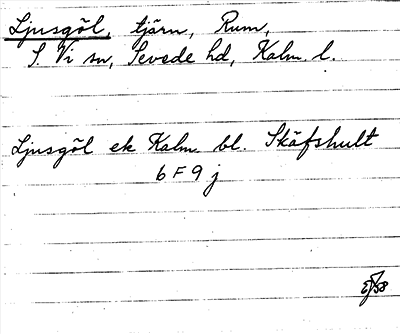 Ljusgöl, tjärn, Rum,
S. Vi sn, Sevede hd, Kalm. l.
Ljusgöl ek Kalm bl. Skäfshult
6 F 9 j